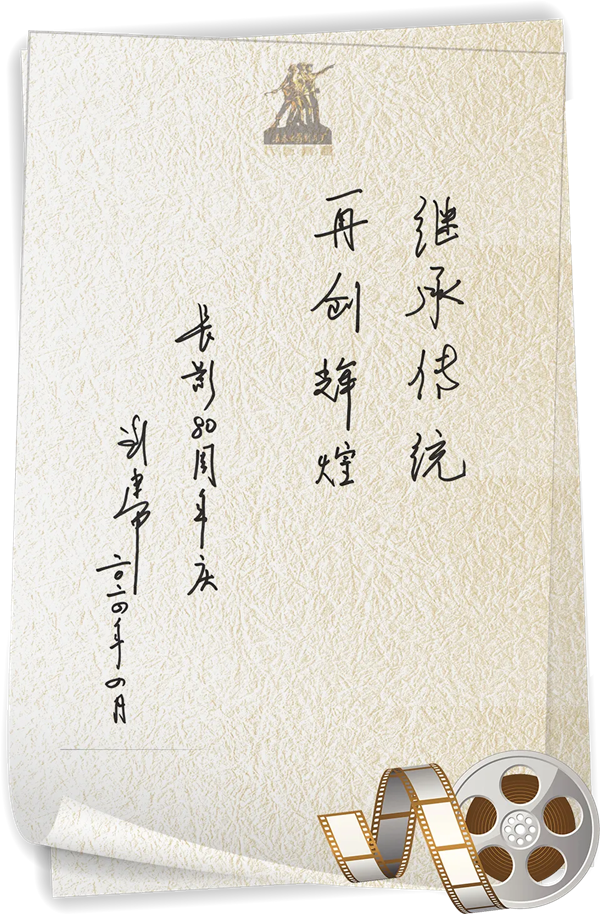 继承传统
再创辉煌
长影80周年庆
二〇二四年四月